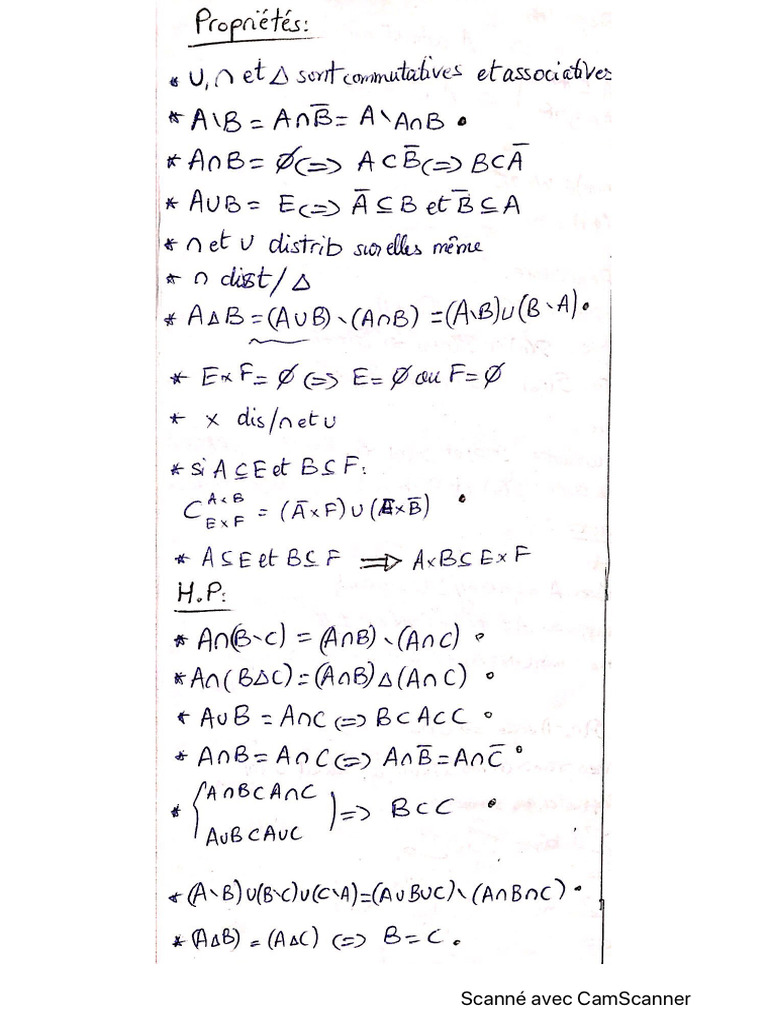 Propriétés:
* ∪, ∩ et Δ sont commutatives et associatives
* A\B = A∩B̅ = A\A∩B •
* A∩B = ∅ <=> A⊂B̅ <=> B⊂A̅
* A∪B = E <=> A̅⊆B et B̅⊆A
* ∩ et ∪ distrib sur elles même
* ∩ dist/Δ
* AΔB = (A∪B)\(A∩B) = (A\B)∪(B\A) •
* E×F = ∅ <=> E = ∅ ou F = ∅
* × dis/∩ et ∪
* si A⊆E et B⊆F:
C_{E×F}^{A×B} = (A̅×F)∪(E×B̅) •
* A⊆E et B⊆F ⟹ A×B⊆E×F
H.P:
* A∩(B\C) = (A∩B)\(A∩C) •
* A∩(BΔC) = (A∩B)Δ(A∩C) •
* A∪B = A∩C <=> B⊂A⊂C •
* A∩B = A∩C <=> A∩B̅ = A∩C̅ •
* { A∩B⊂A∩C
A∪B⊂A∪C ) => B⊂C •
* (A\B)∪(B\C)∪(C\A) = (A∪B∪C)\(A∩B∩C) •
* (AΔB) = (AΔC) <=> B = C •
Scanné avec CamScanner